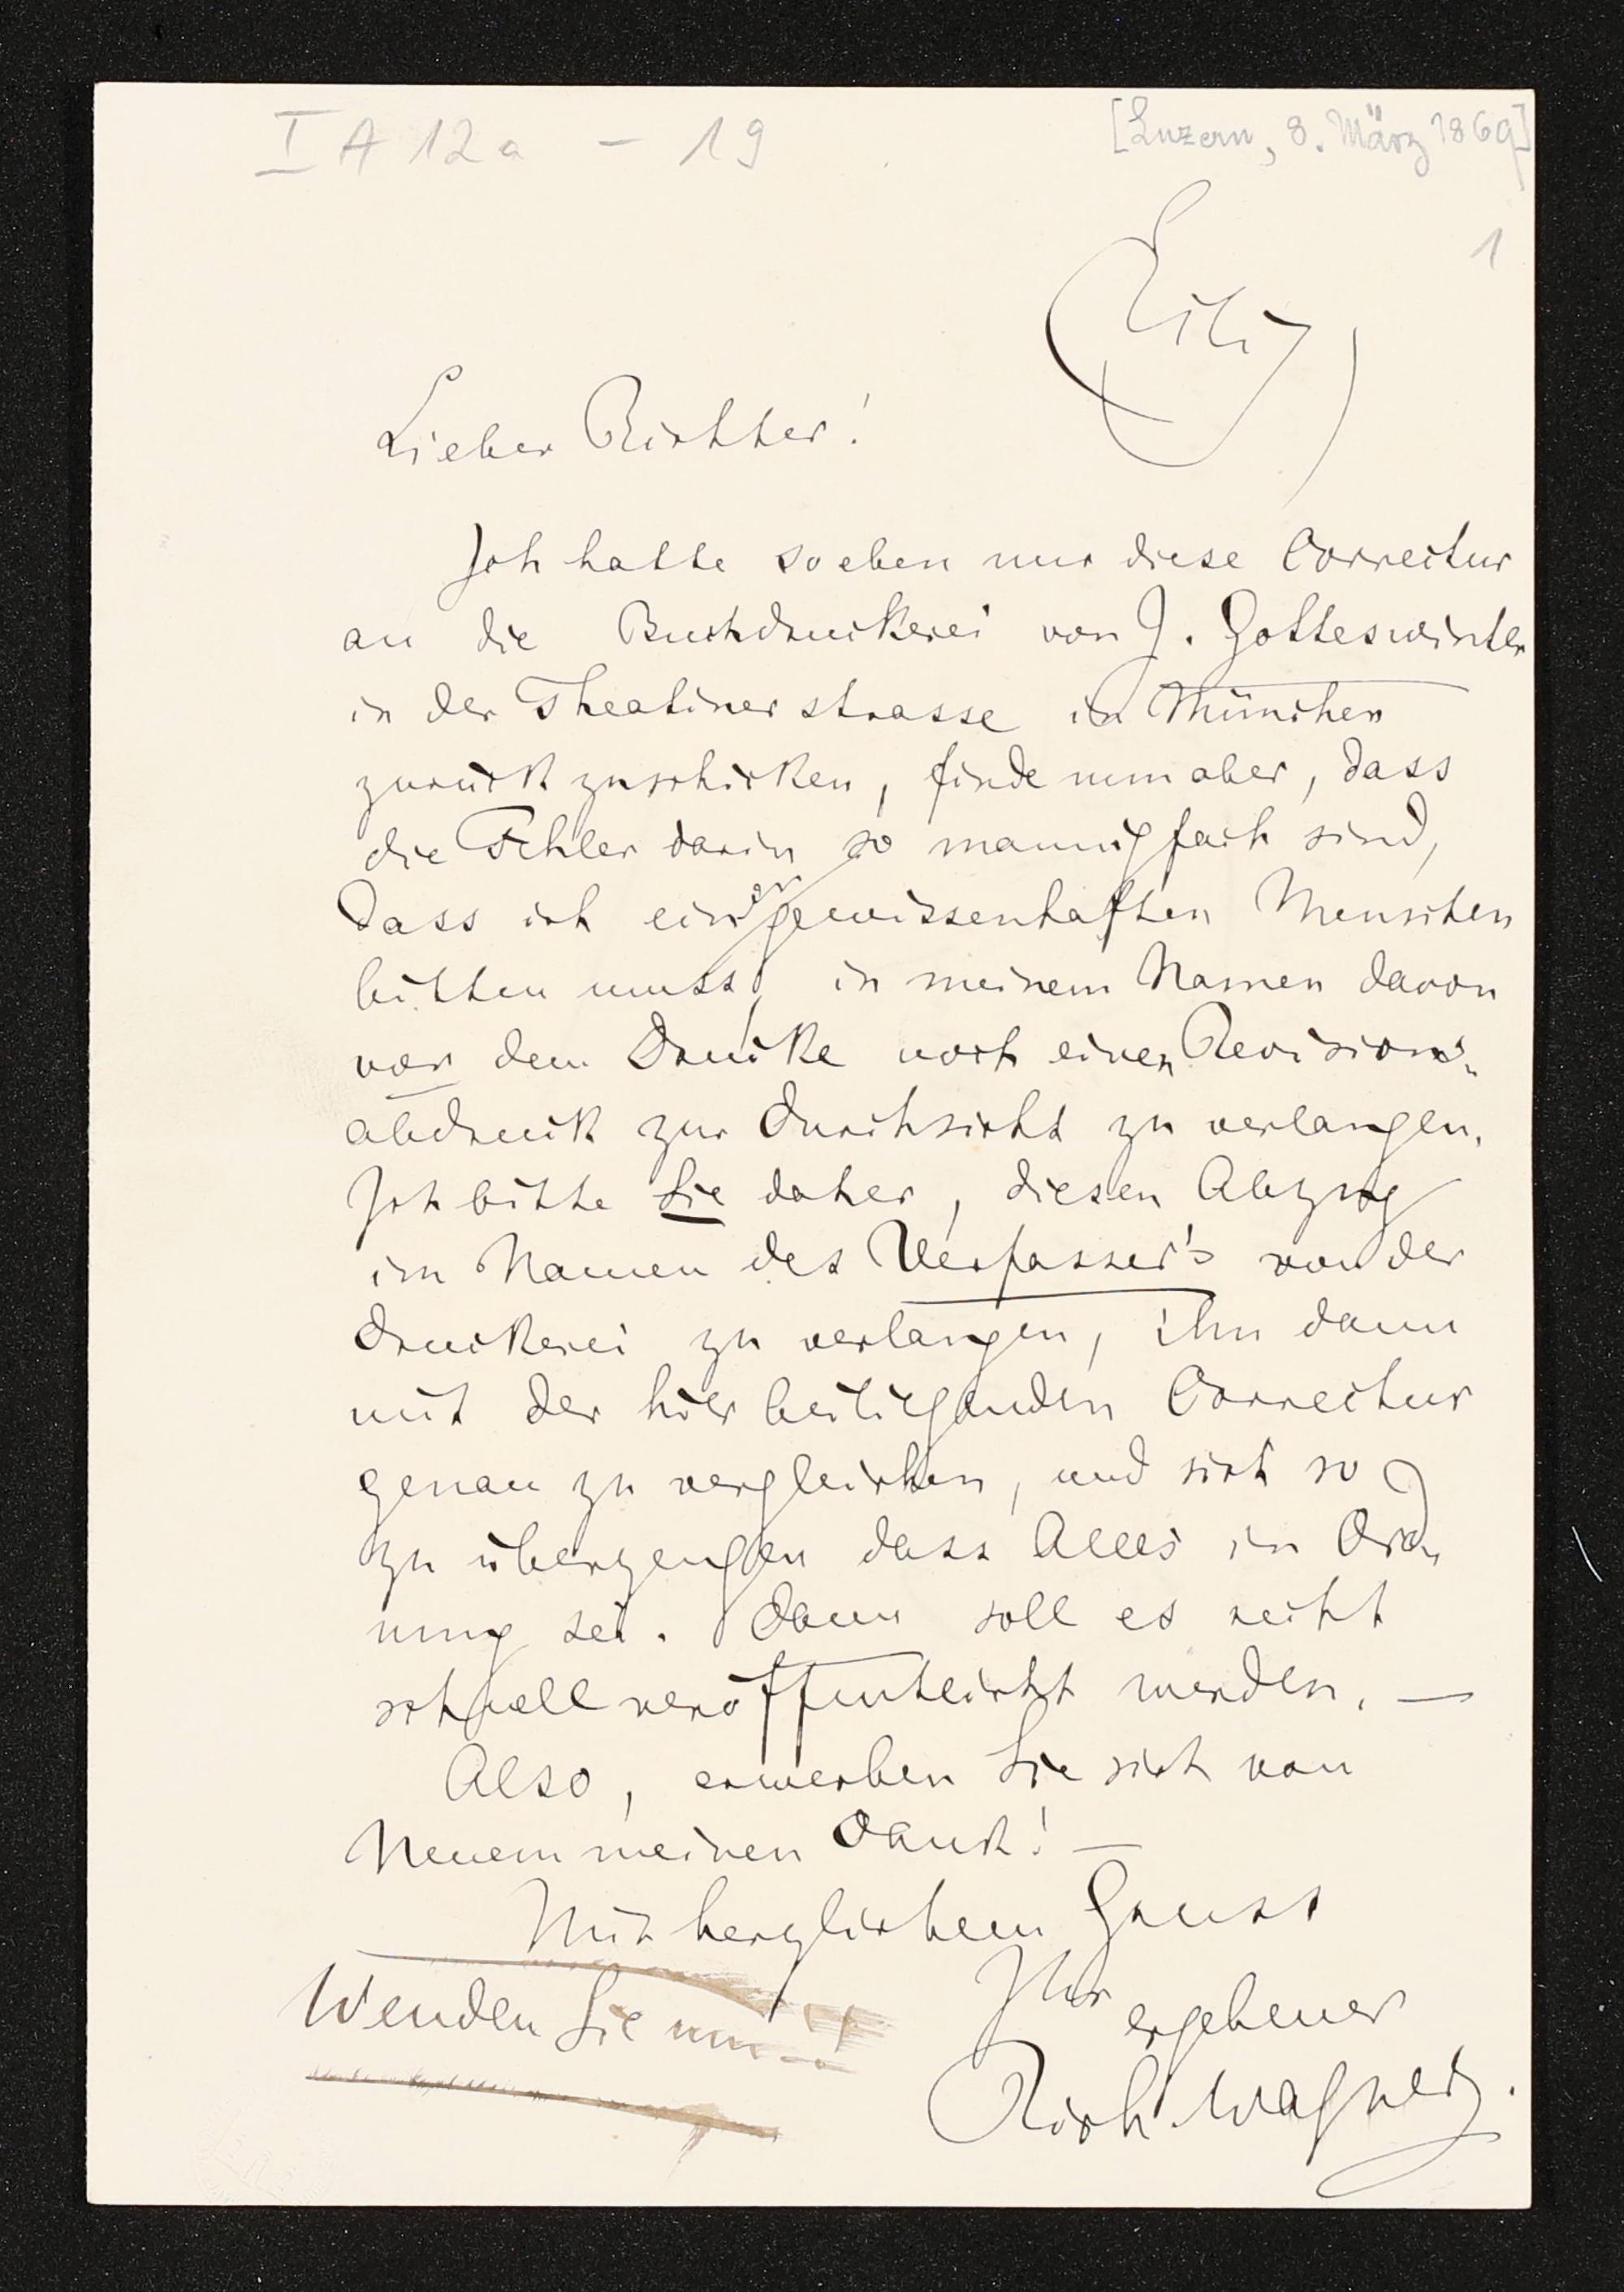 I A 12a – 19
[Luzern, 8. März 1869]
1
(Eilig)
Lieber Richter!
Ich hatte soeben nur diese Correctur
an die Buchdruckerei von J. Gotteswinter
in der Theatinerstrasse in München
zurückzuschicken, finde nun aber, dass
die Fehler darin so mannigfach sind,
dass ich einen gewissenhaften Menschen
bitten muss, in meinem Namen davon
vor dem Drucke noch einen Revisions-
abdruck zur Durchsicht zu verlangen.
Ich bitte Sie daher, diesen Abzug
im Namen des Verfasser's von der
Druckerei zu verlangen, ihn dann
mit der hier beiliegenden Correctur
genau zu vergleichen, und sich so
zu überzeugen dass Alles in Ord-
nung sei. Dann soll es recht
schnell veröffentlicht werden. —
Also, erwerben Sie sich von
Neuem meinen Dank! —
Mit herzlichem Gruss
Ihr
ergebener
Rich. Wagner.
Wenden Sie um!